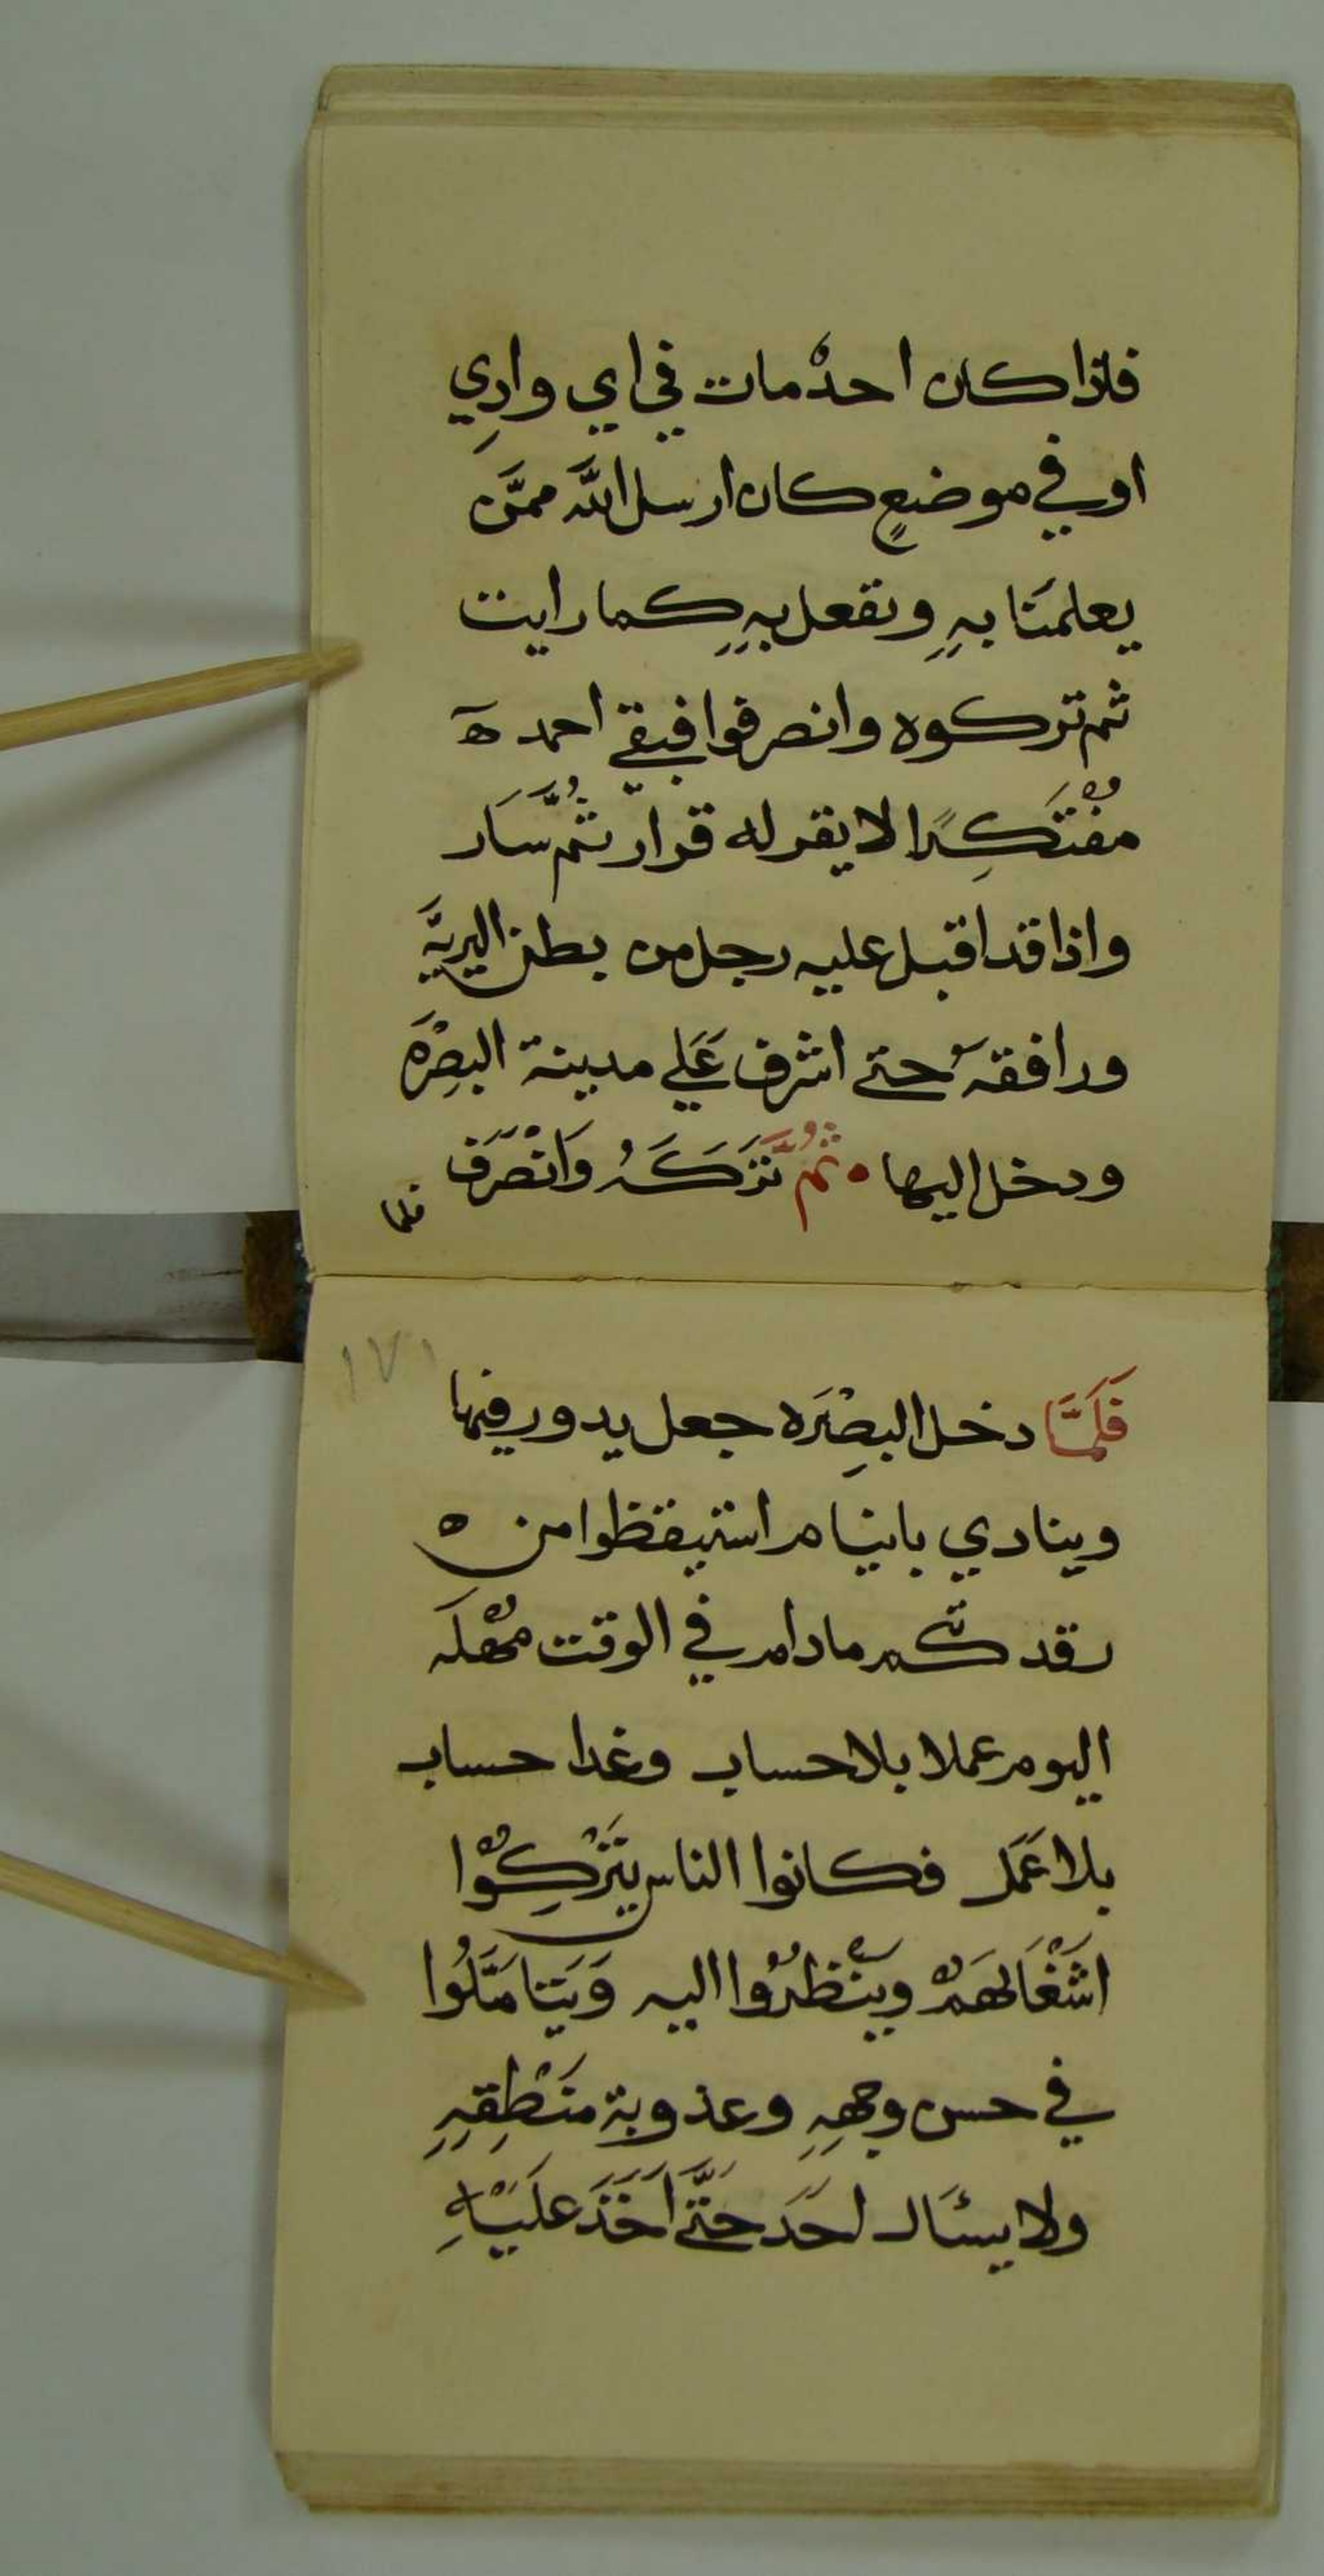 فاذا كان احدْ مات في اي وادِي
او في موضعٍ كان ارسل اللَّه ممَّن
يعلمَنا بهِ ونفعل بهِ كما رايت
ثم تركوه وانصرفوا فبقي احمد ه
مفْتَكِرًا لا يقر له قرار ثُمَّ سَار
واذا قد اقبل عليه رجل من بطن البريَّة
ورافقه حتي اشرف عَلي مدينة البصِرَه
ودخل اليها • ثُمَّ تَرَكَهُ وَانْصَرَف
فلما
١٧١
فَلَمَّا دخل البصِرَه جعل يدور فيها
وينادي يا نيام استيقظوا من ه
رقدتكم مادام في الوقت مُهْلَه
اليوم عملا بلا حساب وغدا حساب
بلا عَمَل فكانوا الناس يَتَركِوُا
اشْغَالهَمْ وينْظرُوا اليه وَيَتامَّلُوا
في حسن وجههِ وعذوبة منْطِقهِ
ولا يسْئَال احَد حَتَّي اَخَذَ عَليْهِ